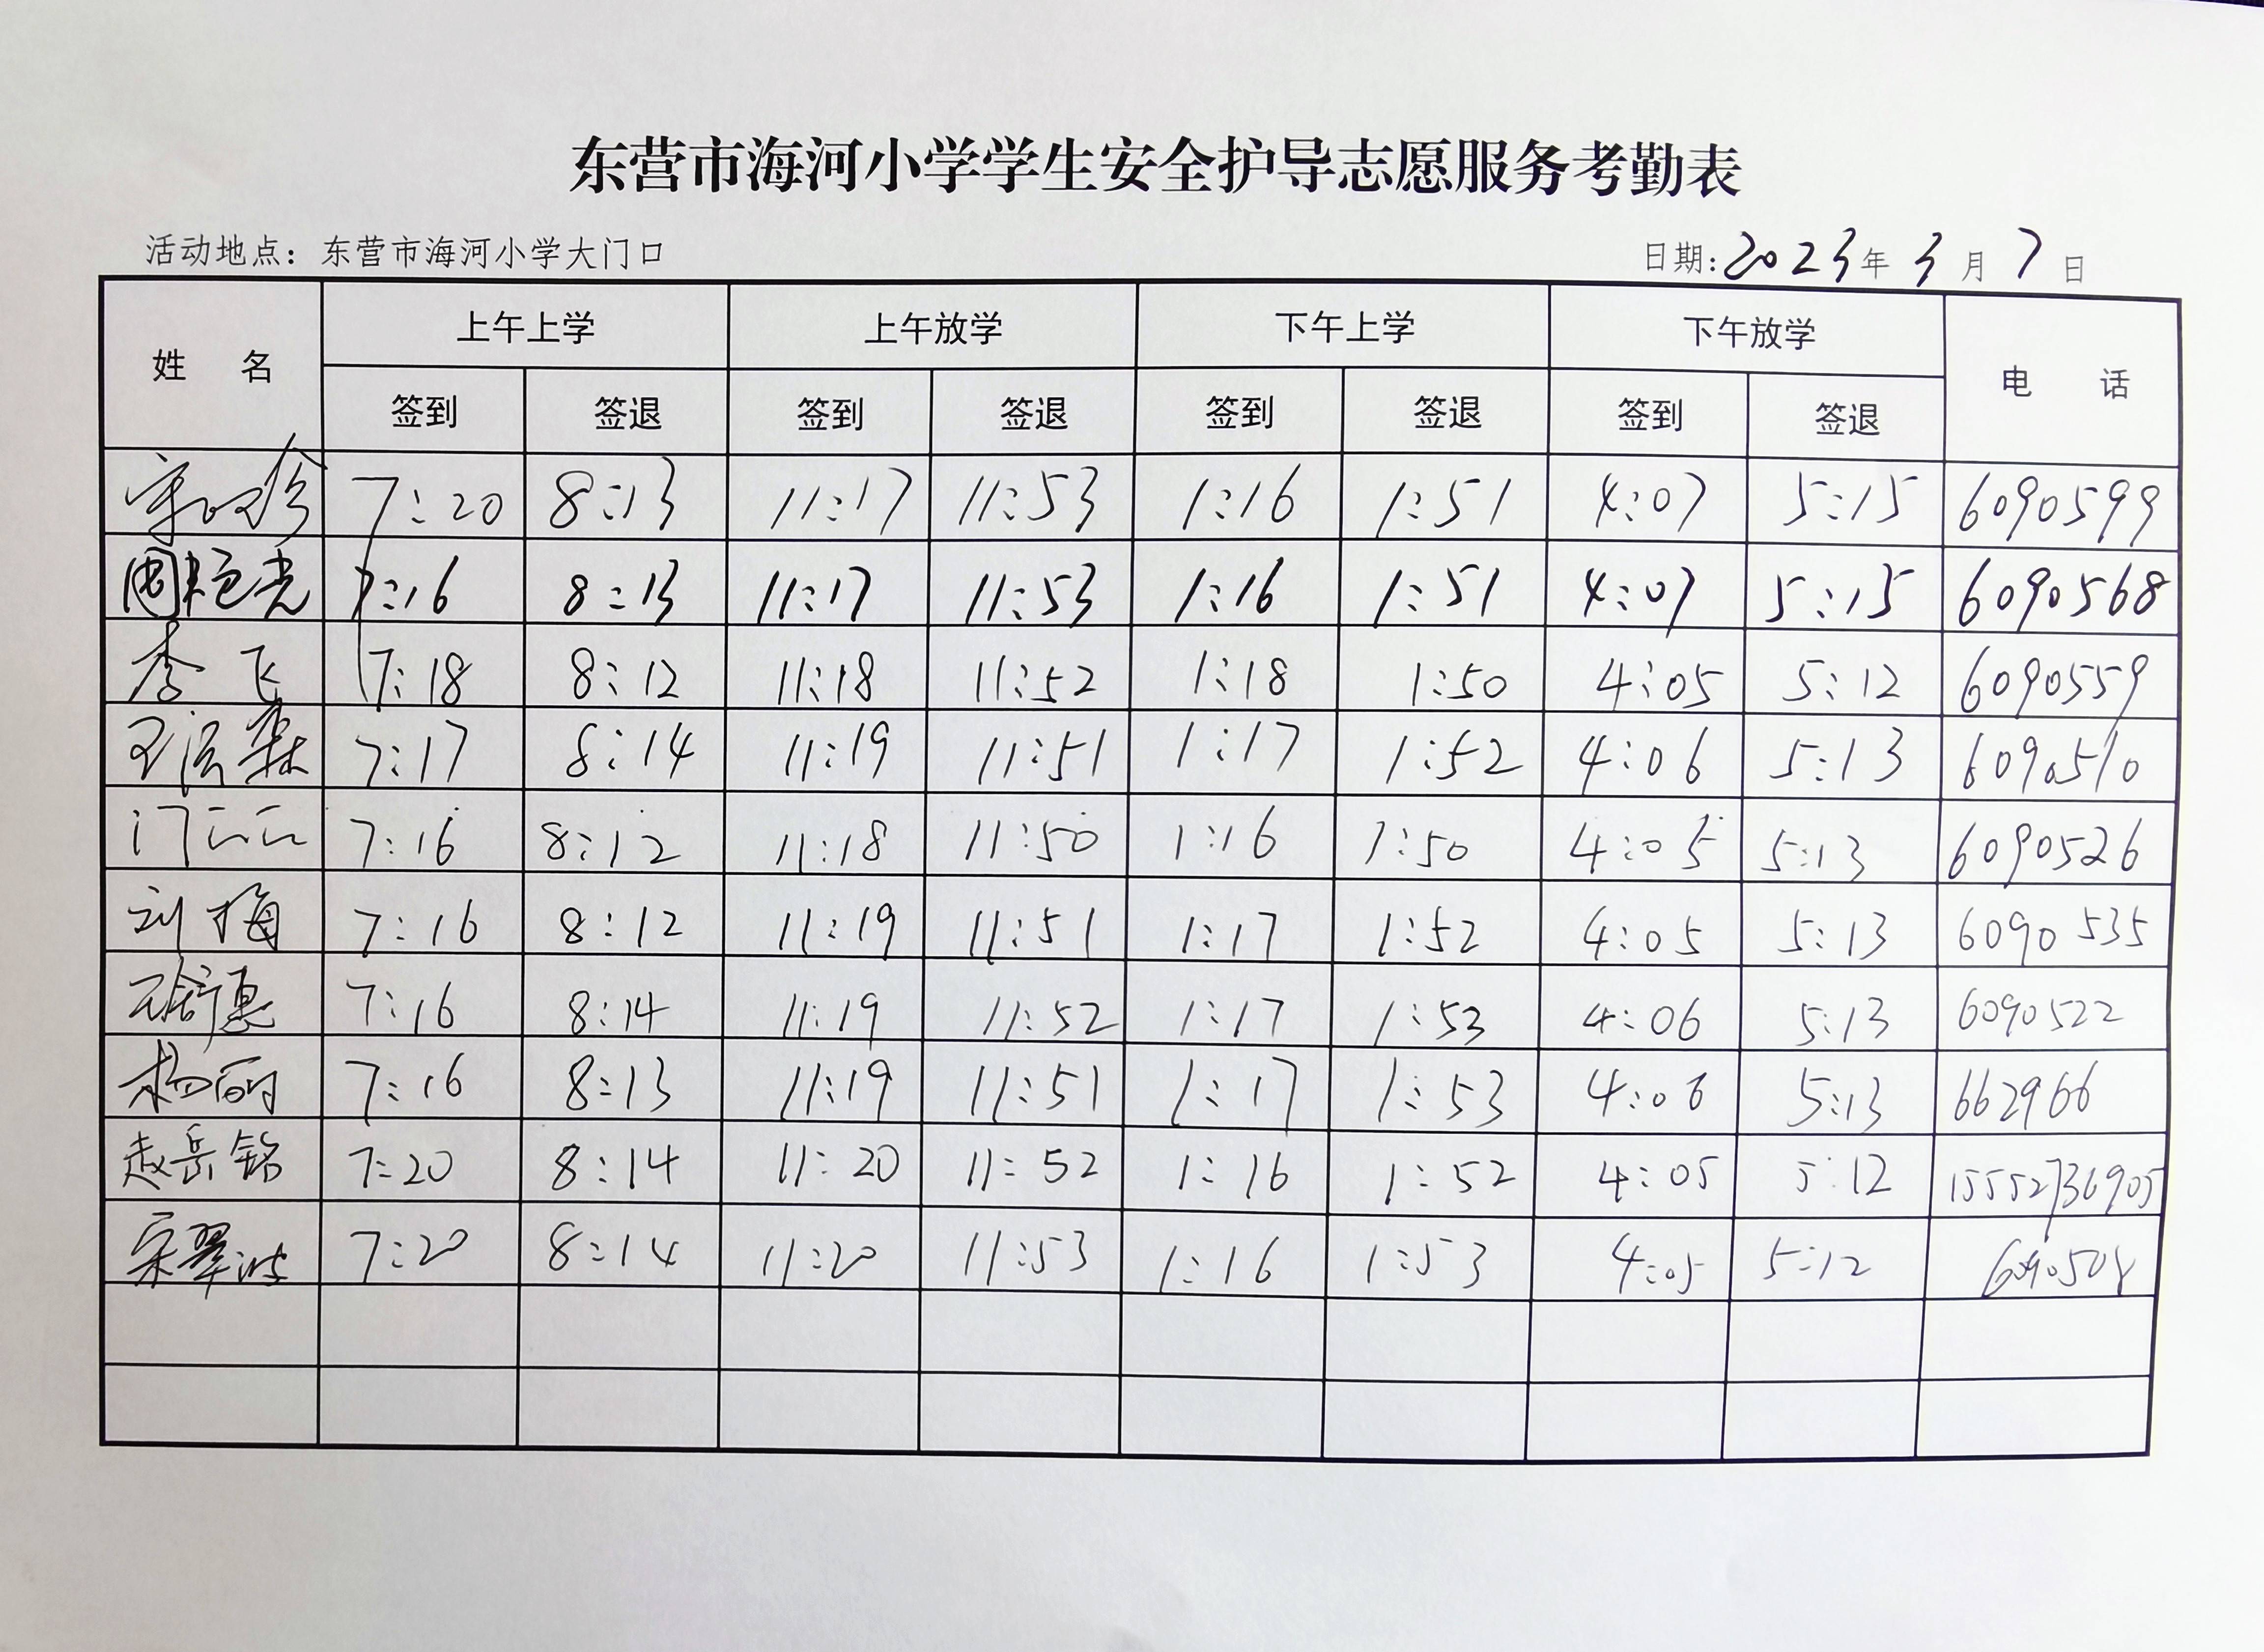 东营市海河小学学生安全护导志愿服务考勤表
活动地点：东营市海河小学大门口 日期:2023年3月7日
姓 名 上午上学 上午放学 下午上学 下午放学 电 话
签到 签退 签到 签退 签到 签退 签到 签退
7:20 8:13 11:17 11:53 1:16 1:51 4:07 5:15 6090599
7:16 8:13 11:17 11:53 1:16 1:51 4:07 5:15 6090568
李飞 7:18 8:12 11:18 11:52 1:18 1:50 4:05 5:12 6090559
7:17 8:14 11:19 11:51 1:17 1:52 4:06 5:13 6090510
7:16 8:12 11:18 11:50 1:16 1:50 4:05 5:13 6090526
刘梅 7:16 8:12 11:19 11:51 1:17 1:52 4:05 5:13 6090535
7:16 8:14 11:19 11:52 1:17 1:53 4:06 5:13 6090522
杨丽 7:16 8:13 11:19 11:51 1:17 1:53 4:06 5:13 662966
赵岳铭 7:20 8:14 11:20 11:52 1:16 1:52 4:05 5:12 15552736905
宋翠波 7:20 8:14 11:20 11:53 1:16 1:53 4:05 5:12